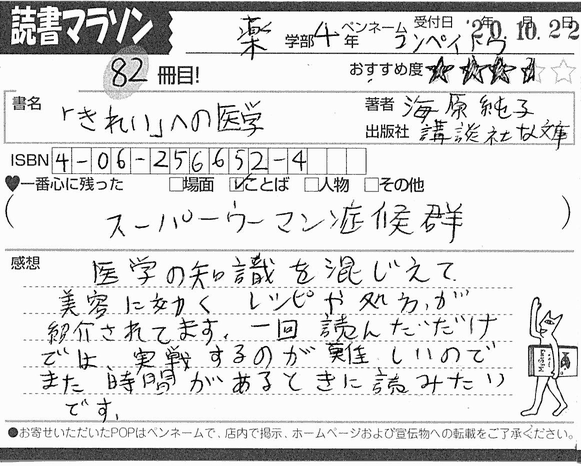 読書マラソン
薬 学部 4 年 ペンネーム コンペイトウ 受付日 '20年10月22日
82 冊目! おすすめ度 ★★★★☆
書名 「きれい」への医学 著者 海原純子
出版社 講談社文庫
ISBN 4-06-256652-4
♥一番心に残った □場面 ☑ことば □人物 □その他
(スーパーウーマン症候群)
感想 医学の知識を混じえて
美容に効く レシピや処方が
紹介されてます。一回読んだだけ
では、実戦するのが難しいので
また時間があるときに読みたい
です。
●お寄せいただいたPOPはペンネームで、店内で掲示、ホームページおよび宣伝物への転載をご了承ください。